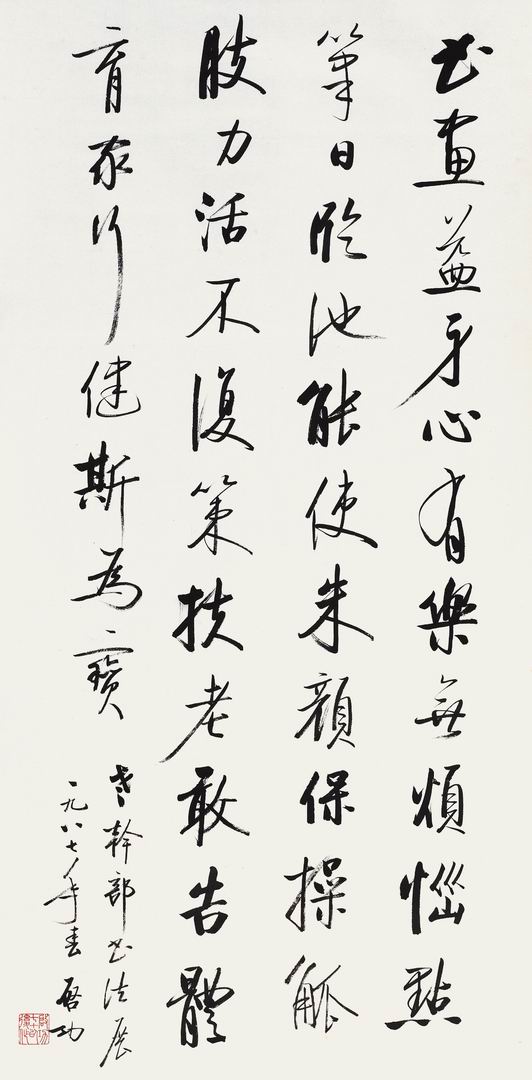 書畫益身心有樂無煩惱點
筆日臨池能使朱顏保操觚
肢力活不復策扶老敢告體
育家行健斯為寶
老幹部書法展
一九八七年春 啓功